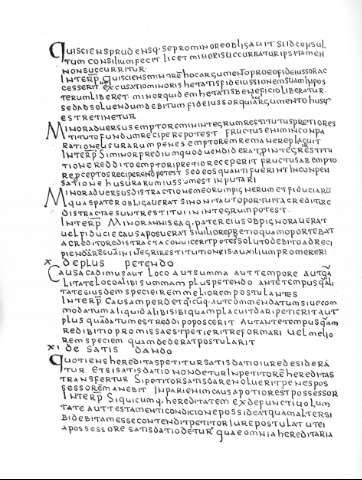 Qui sciens prudensq· se pro minore obligavit si id consul
tum consilium fecit licet minori succurratur ipsi tamen
non succurritur
Interp Qui sciens minore hoc argumento pro eo fideiussor ac
cesserit ut excusatio minoris hetatis fideiussionem suam
terum liberet minor quidem hetatis beneficio liberatur
sed ad solvendum debitum fideiussor qui argumento
est retinetur
Minor adversus emptorem in integrum restitutus pretio res
tituto fundum recipere potest fructus enim in con
rationem usurarum penes emptorem remanere placuit
Interp Si minor predium quod vendiderat in integr restitu
tione reddito emptori pretio receperit fructus ab empto
re perceptos recipere non potest sed eos quanti fuerint in conpen
satione husurarum iussum est inputari
Minor adversus distractionem eorum pignerum et fiduciarum
quas pater obligaverat si non ita ut oportuit a creditore
distractae sunt restitui in integrum potest
Interp Minor annis ea q· pater eius ob pignora verat
vel fiducie causa posuerat si aliter pretio quam oportebat
a creditore distracta convicerit potest soluto debito ad reci
pienda sua in integri restitutionis auxilium promereri
x de plus petendo
Causa cadimus aut loco aut summa aut tempore aut qua
litate loco alibi summam plus petendo ante tempus
tate eiusdem speciei rem meliorem postulantes
Interp Causam perdet si quis aut commendatum sive com
modatum aliquid alibi sibi quam placuit dari petierit aut
plus quam datum est reddi poposcerit aut ante tempus quam
redibitio promissa est petierit reformari vel melio
rem speciem quam dederat postularit
xi de satis dando
Quotiens hereditas petitur satisdatio iure desidera
tur et si satisdatio non detur in petitore hereditas
transfertur si petitor satisdare noluerit penes pos
sessorem manebit in pari enim causa potior est possessor
Interp Si quicumq· hereditatem ex defuncti volun
tate aut testamenti condicione possideat quam alter si
bi debitam esse contendit petitor iure postulat ut ei
a possessore satis dato detur quae omnia hereditaria